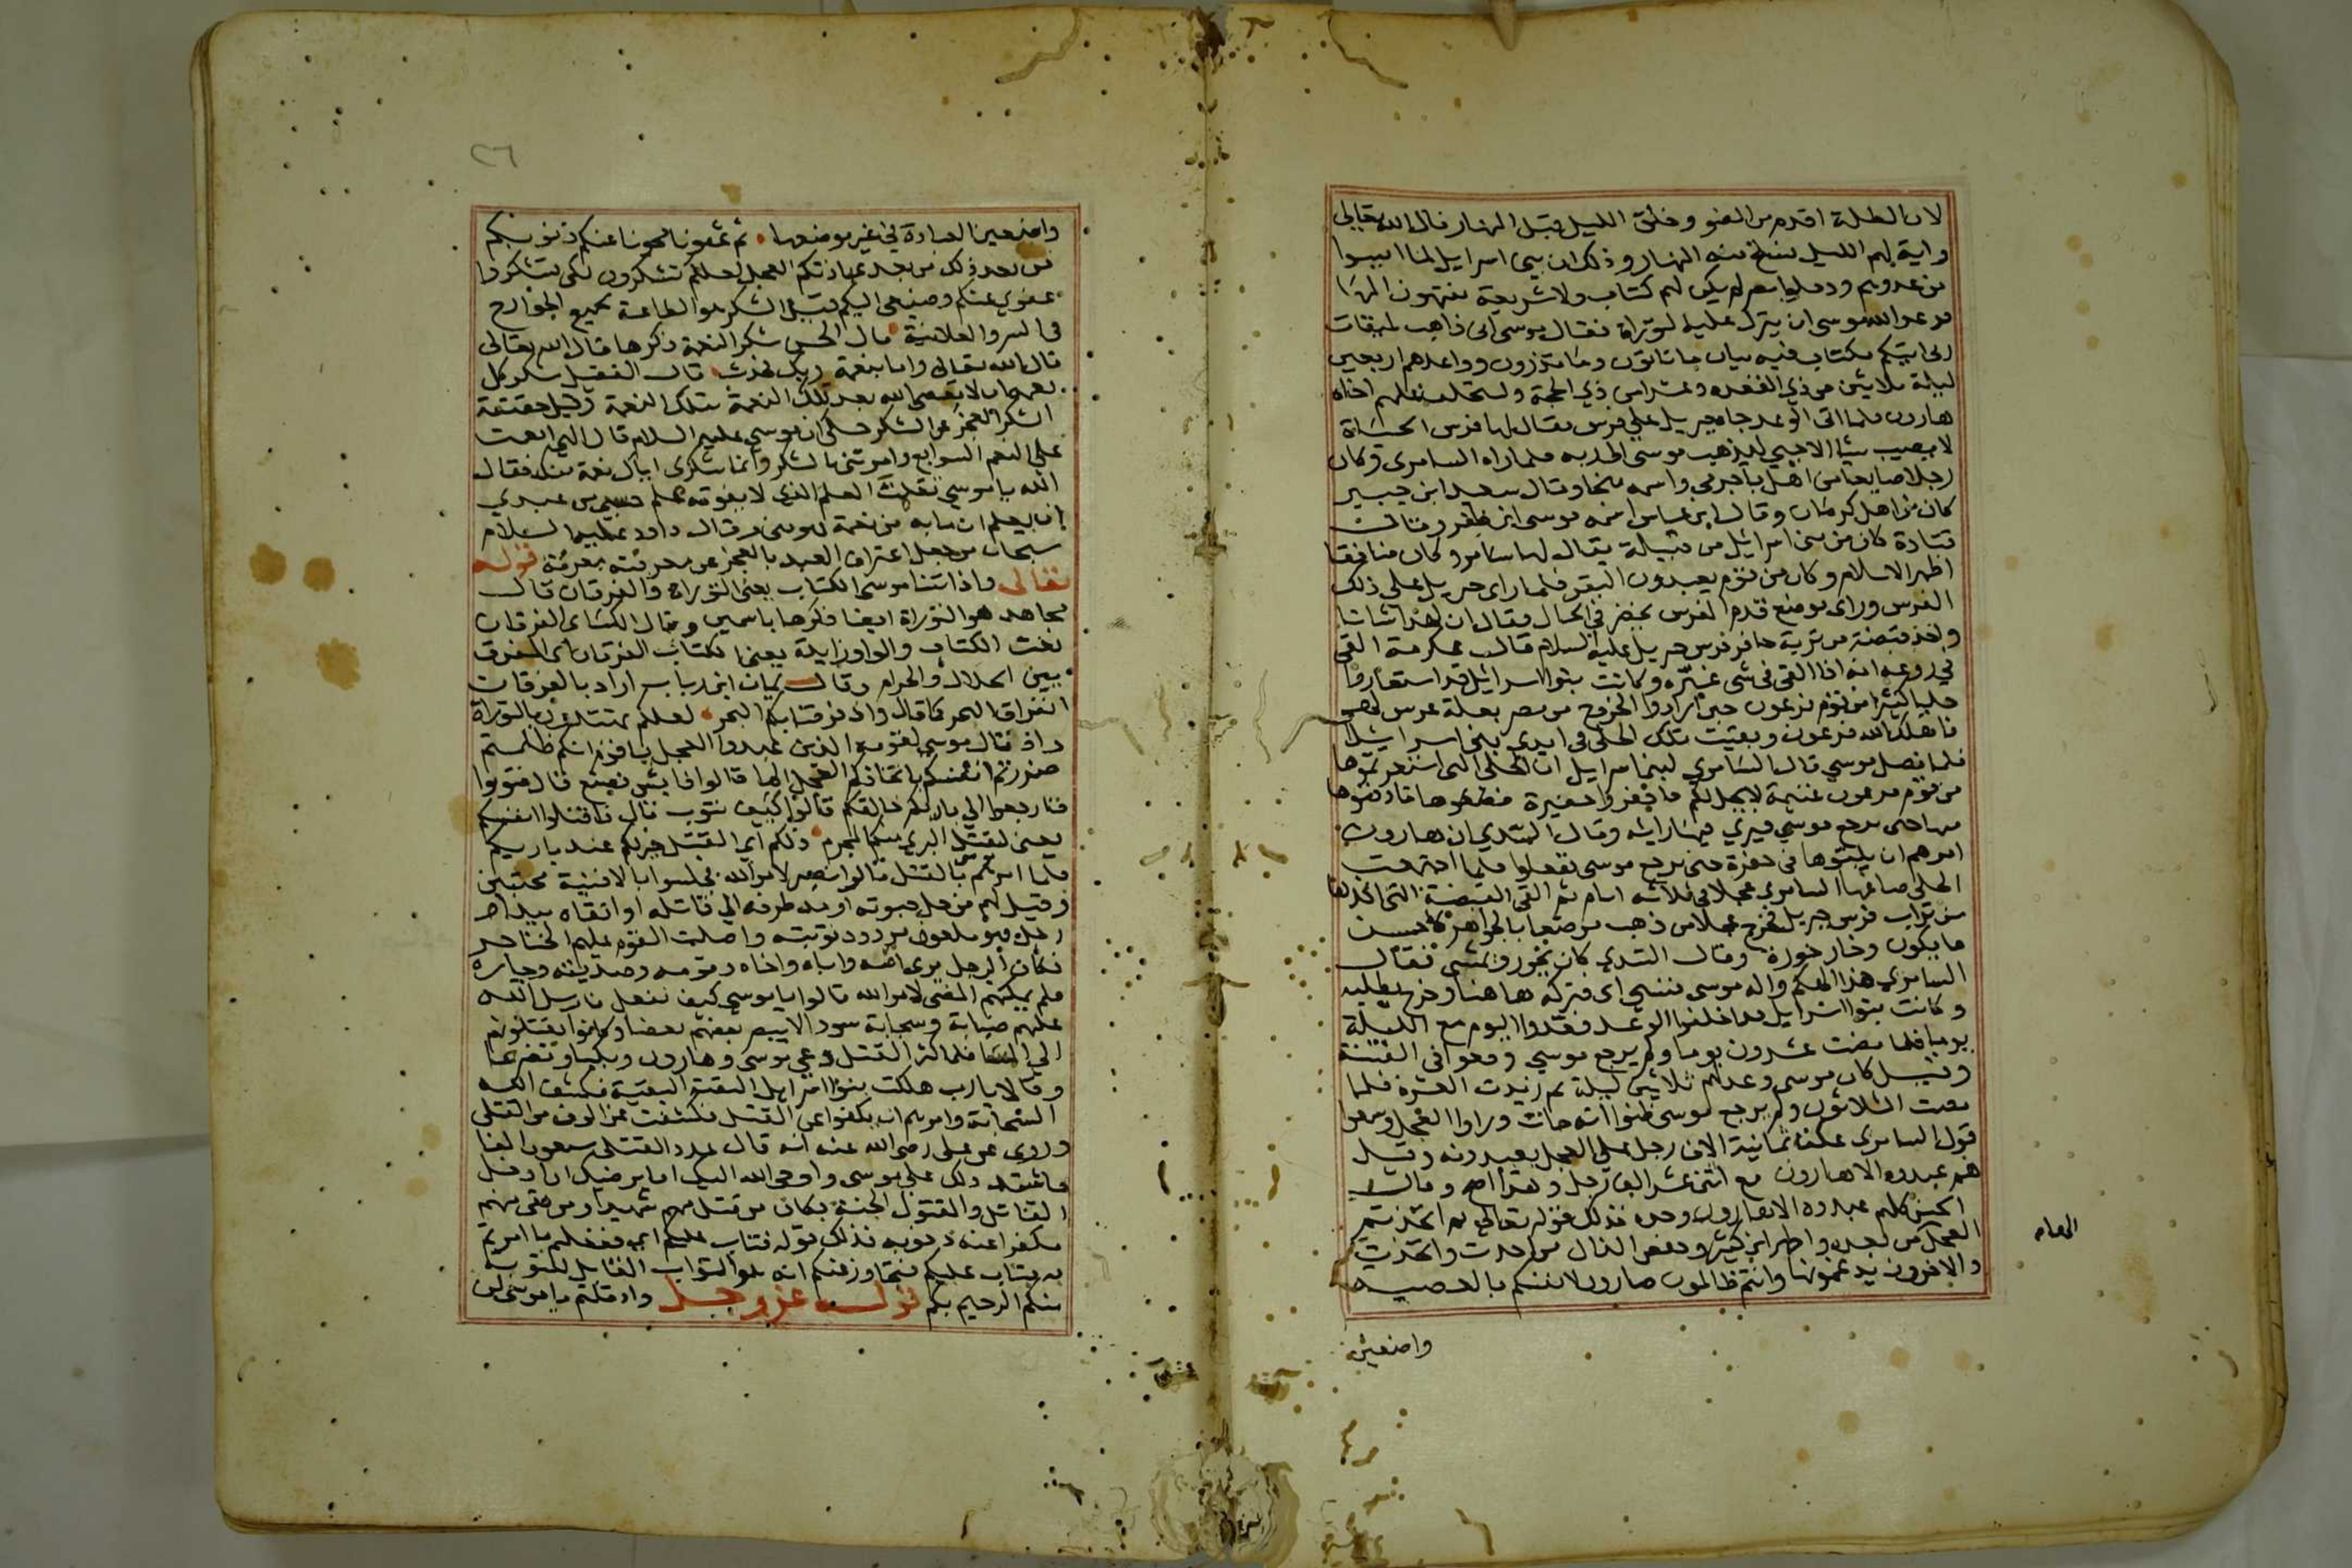 لان الظلمة اقدم من الضو وخلق الليل قبل النهار قال الله تعالى
واية لهم الليل نسلخ منه النهار وذلك ان بني اسرايل لما امنوا
من عدوهم ودخلوا مصر لم يكن لهم كتاب ولا شريعة ينتهون اليها
فوعد الله موسى ان ينزل عليه التوراة فقال موسى اني ذاهب لميقات
ربي اتيكم بكتاب فيه بيان ما تاتون وما تذرون وواعدهم اربعين
ليلة ثلاثين من ذي القعده وعشرا من ذي الحجة واستخلف عليهم اخاه
هارون فلما اتى الوعد جاه جبريل على فرس يقال لها فرس الحياة
لا يصيب شيا الا حيي ليذهب موسى الى ربه فلما راه السامري وكان
رجلا صايغا من اهل باجرمي واسمه ميخا وقال سعيد ابن جبير
كان من اهل كرمان وقال ابن عباس اسمه موسى ابن ظفر وقالت
قتادة كان من بني اسرائيل من قبيلة يقال لها سامره وكان منافقا
اظهر الاسلام وكان من قوم يعبدون البقر فلما راى جبريل على ذلك
الفرس وراى موضع قدم الفرس يخضر في الحال فقال ان لهذا شانا
واخذ قبضة من تربة حافر فرس جبريل عليه السلام قال عكرمة القي
في روعه انه اذا القي في شي غيره وكانت بنوا اسرائيل قد استعاروا
حليا كثيرا من قوم فرعون حين ارادوا الخروج من مصر بعلة عرس لهم
فاهلك الله فرعون وبقيت تلك الحلي في ايدي بني اسرايل
فلما فصل موسى قال السامري لبني اسرايل ان الحلي التي استعرتموها
من قوم فرعون غنيمة لا تحل لكم فاحفروا حفيرة فادفنوها
فيها حتى يرجع موسى فيرى فيها رايه وقال السدي ان هارون
امرهم ان يلقوها في حفرة حتى يرجع موسى ففعلوا فلما اجتمعت
الحلي صاغها السامري عجلا في ثلاثة ايام ثم القى القبضة التي اخذها
من تراب فرس جبريل فخرج عجلا من ذهب مرصعا بالجواهر كاحسن
ما يكون وخار خورة وقال السدي كان يخور ويمشي فقال
السامري هذا الهكم واله موسى فنسي اي فتركه هاهنا وخرج يطلبه
وكانت بنوا اسرايل قد اخلفوا الوعد فعدوا اليوم مع الليلة
يومين فلما مضت عشرون يوما ولم يرجع موسى وقعوا في الفتنة
وقيل كان موسى وعدهم ثلاثين ليلة ثم زيدت العشرة فلما
مضت الثلاثون ولم يرجع موسى ظنوا انه مات وراوا العجل وسمعوا
قول السامري عكف ثمانية الاف رجل على العجل يعبدونه وقيل
كلهم عبدوه الا هارون مع اثني عشر الف رجل وهذا اصح وقال
الحسن كلهم عبدوه الا هارون وحده فذلك قوله تعالى ثم اتخذتم
العجل من بعده واظهر ابن كثير وحفص الذال من اخذت واتخذت
والاخرون يدغمونها وانتم ظالمون ضارون لانفسكم بالمعصية
واضعين
واضعين العبادة في غير موضعها ثم عفونا محونا عنكم ذنوبكم
من بعد ذلك من بعد عبادتكم العجل لعلكم تشكرون لكي تشكروا
عفوي عنكم وصنيعي اليكم قيل الشكر هو الطاعة بجميع الجوارح
في السر والعلانية قال الحسن شكر النعمة ذكرها قال الله تعالى
قال الله تعالى واما بنعمة ربك فحدث قال الفضيل شكر كل
نعمة ان لا يعصى الله بعد تلك النعمة بتلك النعمة وقيل حقيقة
الشكر العجز عن الشكر حكي ان موسى عليه السلام قال الهي انعمت
علي النعم السوابغ وامرتني بالشكر وانما شكري اياك نعمة منك فقال
الله يا موسى تعلمت العلم الذي لا يفوته علم حسبي من عبدي
ان يعلم ان ما به من نعمة فهو مني وقال داود عليه السلام
سبحان من جعل اعتراف العبد بالعجز عن معرفته معرفة قوله
تعالى واذ اتينا موسى الكتاب يعني التوراة والفرقان قال
مجاهد هو التوراة ايضا ذكرها باسمين وقال الكسائي الفرقان
نعت الكتاب والواو زايدة يعني الكتاب الفرقان اي المفرق
بين الحلال والحرام وقال يمان ابن رباب اراد بالفرقان
انفراق البحر كما قال واذ فرقنا بكم البحر لعلكم تهتدون بالتوراة
واذ قال موسى لقومه الذين عبدوا العجل يا قوم انكم ظلمتم
ضررتم انفسكم باتخاذكم العجل الها قالوا فاي شي نصنع قال فتوبوا
فارجعوا الى باريكم خالقكم قالوا كيف نتوب قال فاقتلوا انفسكم
يعني ليقتل البري منكم المجرم ذلكم اي القتل خير لكم عند باريكم
فلما امرهم موسى بالقتل قالوا نصبر لامر الله فجلسوا بالافنية محتبين
وقيل لهم من حل حبوته او مد طرفه الى قاتله او اتقاه بيد او
رجل فهو ملعون مردود توبته واصلت القوم عليهم الخناجر
فكان الرجل يرى ابنه واباه واخاه وقومه وصديقه وجاره
فلم يمكنهم المضي لامر الله قالوا يا موسى كيف نفعل فارسل الله
عليهم ضبابة وسحابة سودا لا يبصر بعضهم بعضا وكانوا يقتلونهم
الى المسا فلما كثر القتل دعى موسى وهارون وبكيا وتضرعا
وقالا يارب هلكت بنوا اسرايل البقية البقية فكشف الله
السحابة وامرهم ان يكفوا عن القتل فكشفت عن الوف من القتلى
وروي عن علي رضي الله عنه انه قال عدد القتلى سبعون الفا
فاشتد ذلك على موسى واوحى الله اليه اما يرضيك ان ادخل
القاتل والمقتول الجنة فكان من قتل منهم شهيدا ومن بقي منهم
مكفرا عنه ذنوبه فذلك قوله فتاب عليكم اي ففعلتم ما امرتم
به فتاب عليكم فتجاوز عنكم انه هو التواب القابل للتوبة
منكم الرحيم بكم قوله عز وجل واذ قلتم يا موسى لن